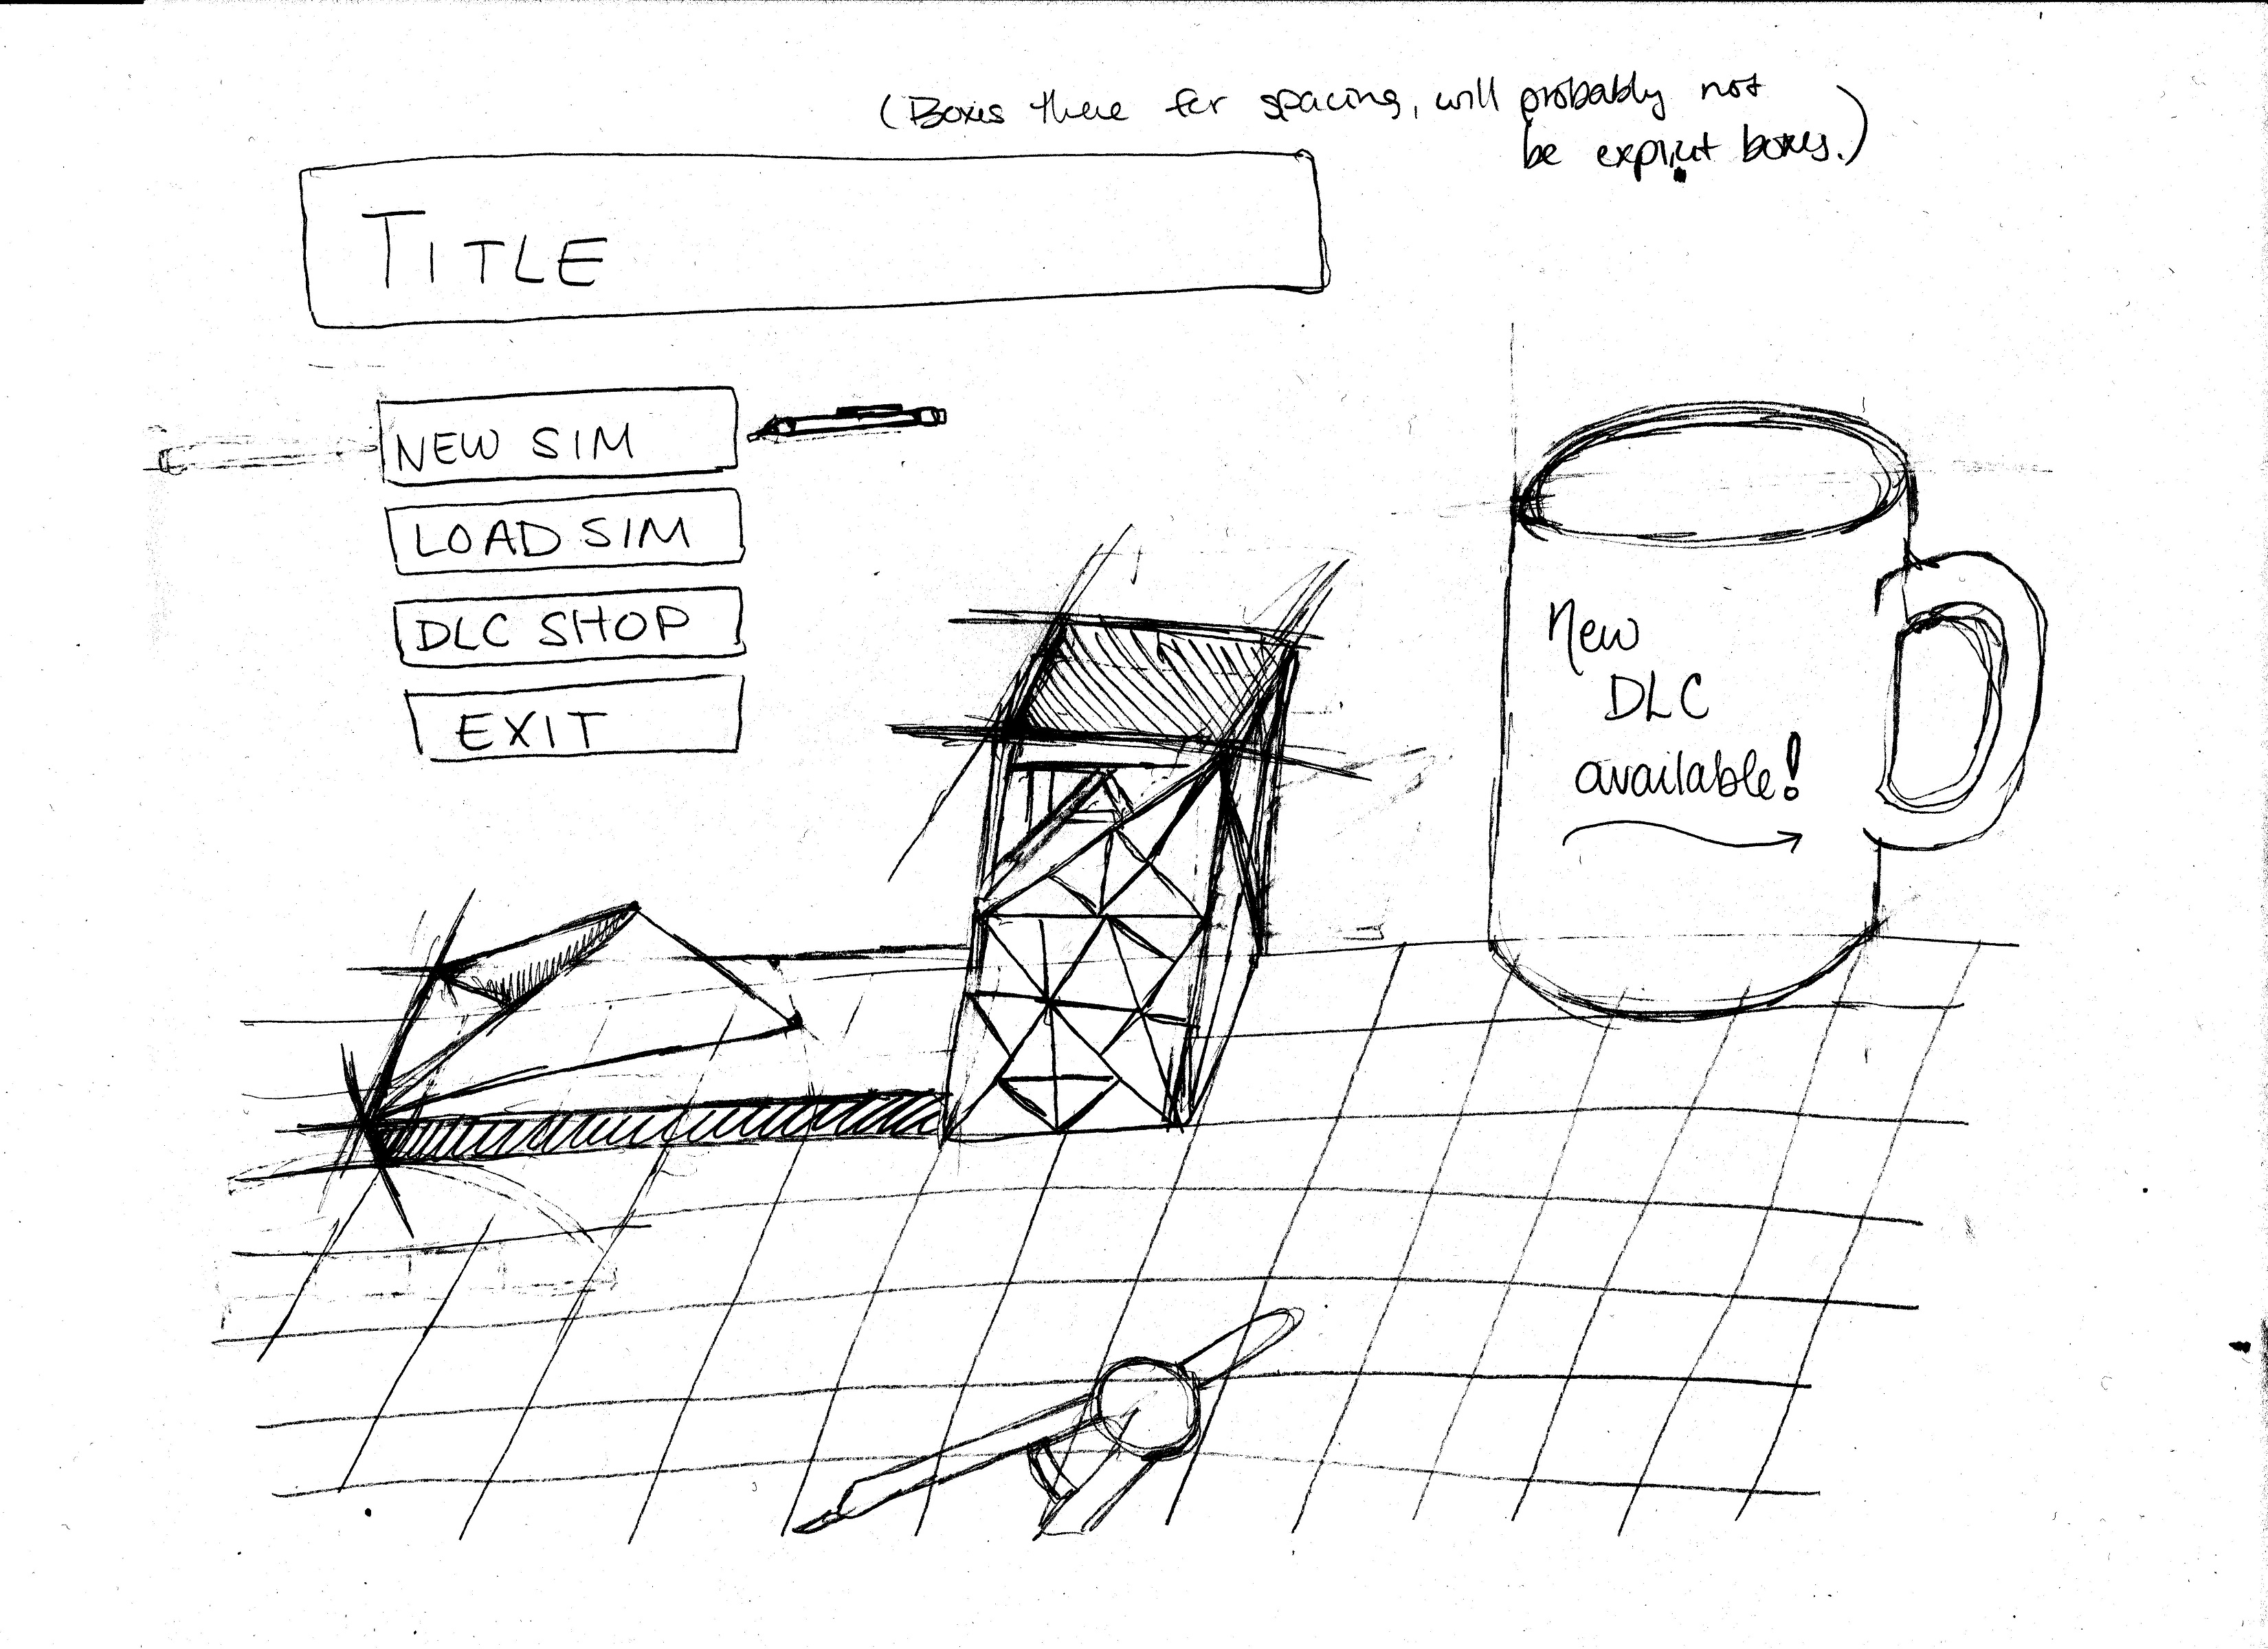 (Boxes there for spacing, will probably not
be explicit boxes.)
TITLE
NEW SIM
LOAD SIM
DLC SHOP
EXIT
New
DLC
available!